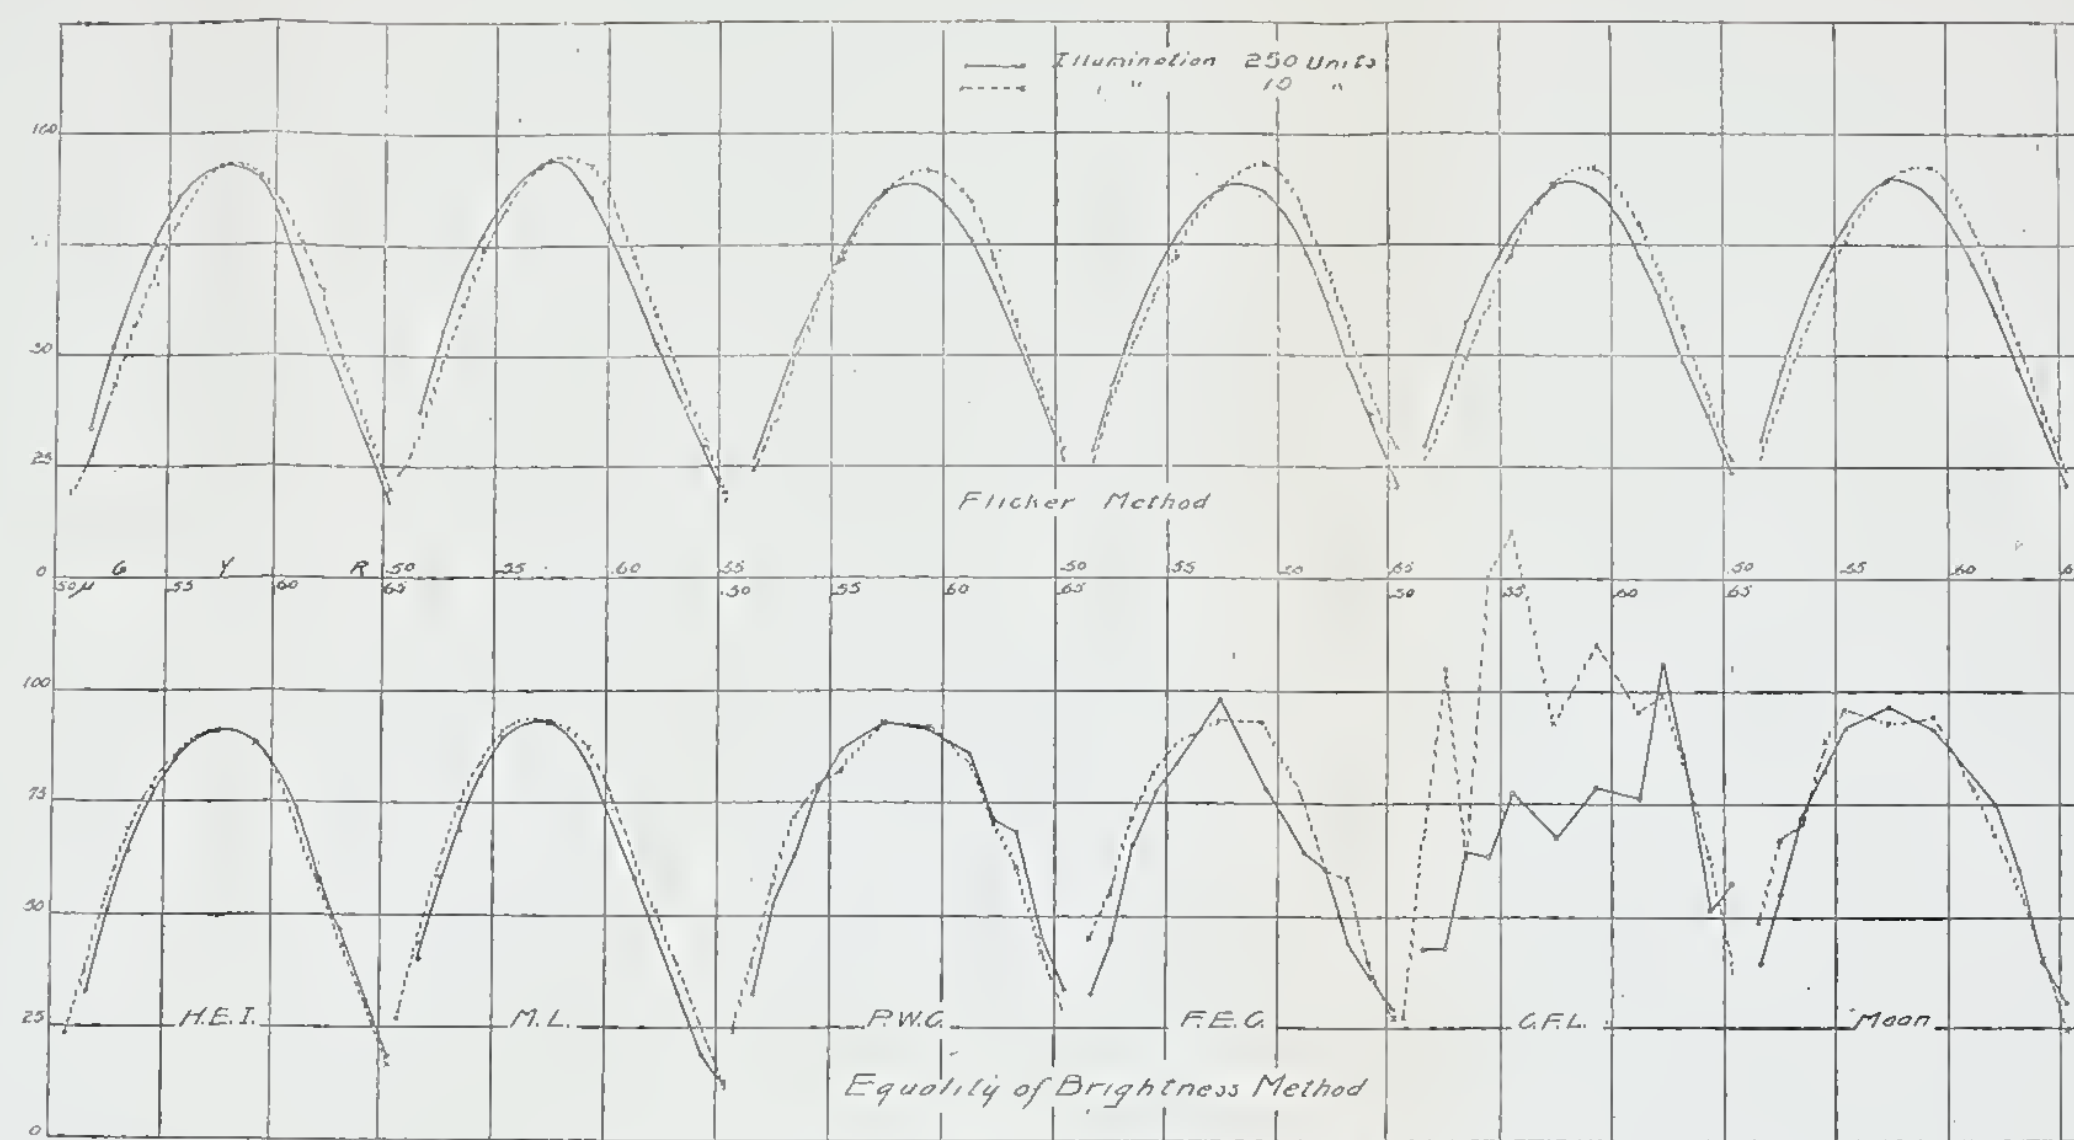 Illumination 250 Units
" 10 "
100
50
25
Flicker Method
G Y R .50 .55 .60 .55 .50 .55 .65 .50 .55 .60
0
.50μ .55 .60 .65 .50 .55 .60 .65 .50 .55 .60 .65
100
75
50
25
H.E.I. M.L. P.W.C. F.E.C. C.F.L. Mean
Equality of Brightness Method
0